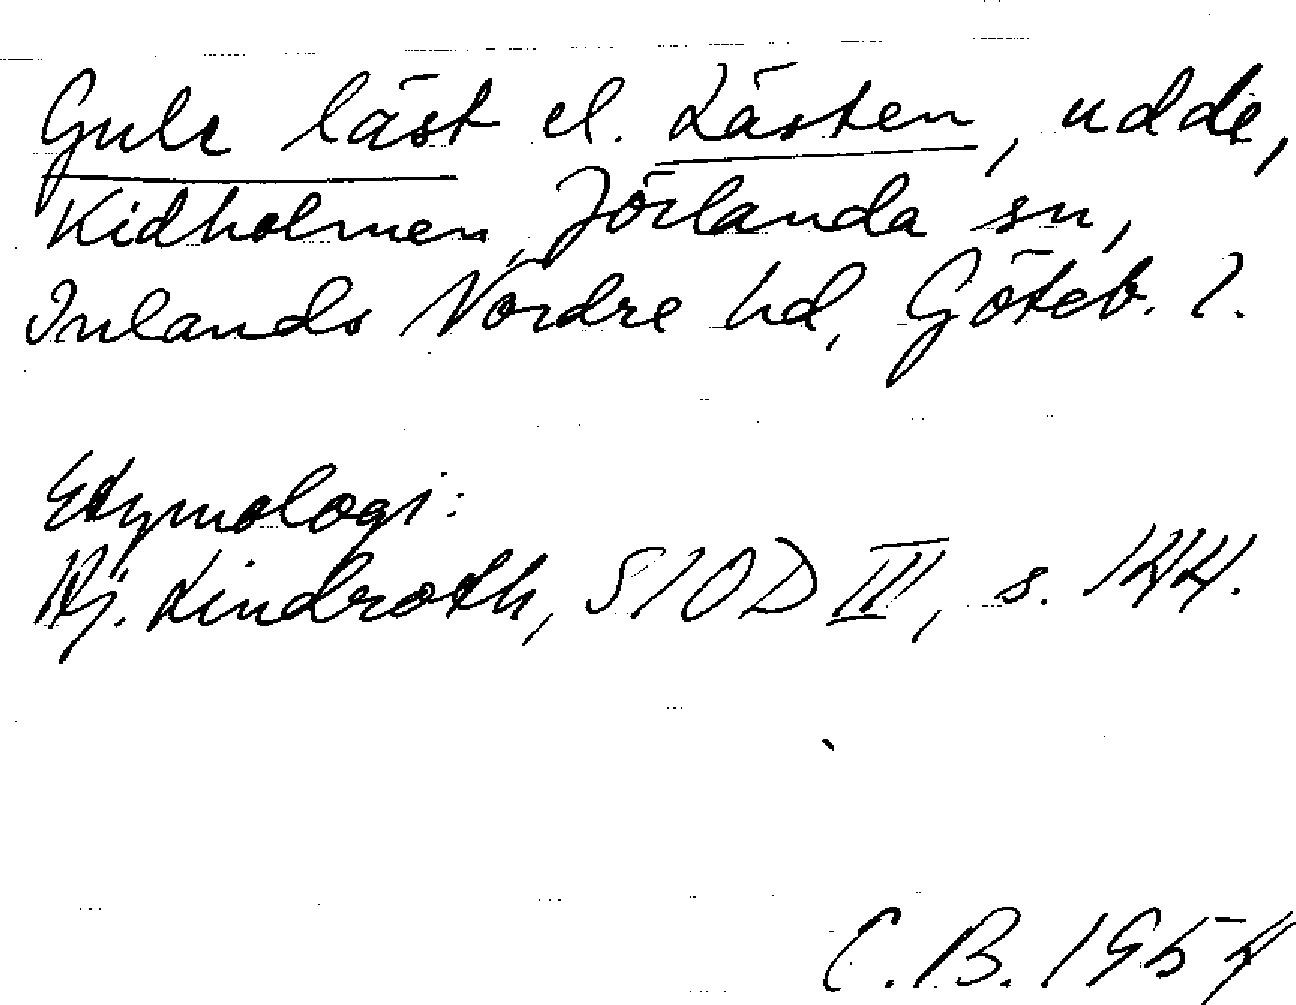 Gule läst el. Lästen, udde,
Kidholmen, Jörlanda sn,
Inlands Nordre hd, Göteb. l.
Etymologi:
Hj. Lindroth, SIOD III, s. 144.
C. B. 1954